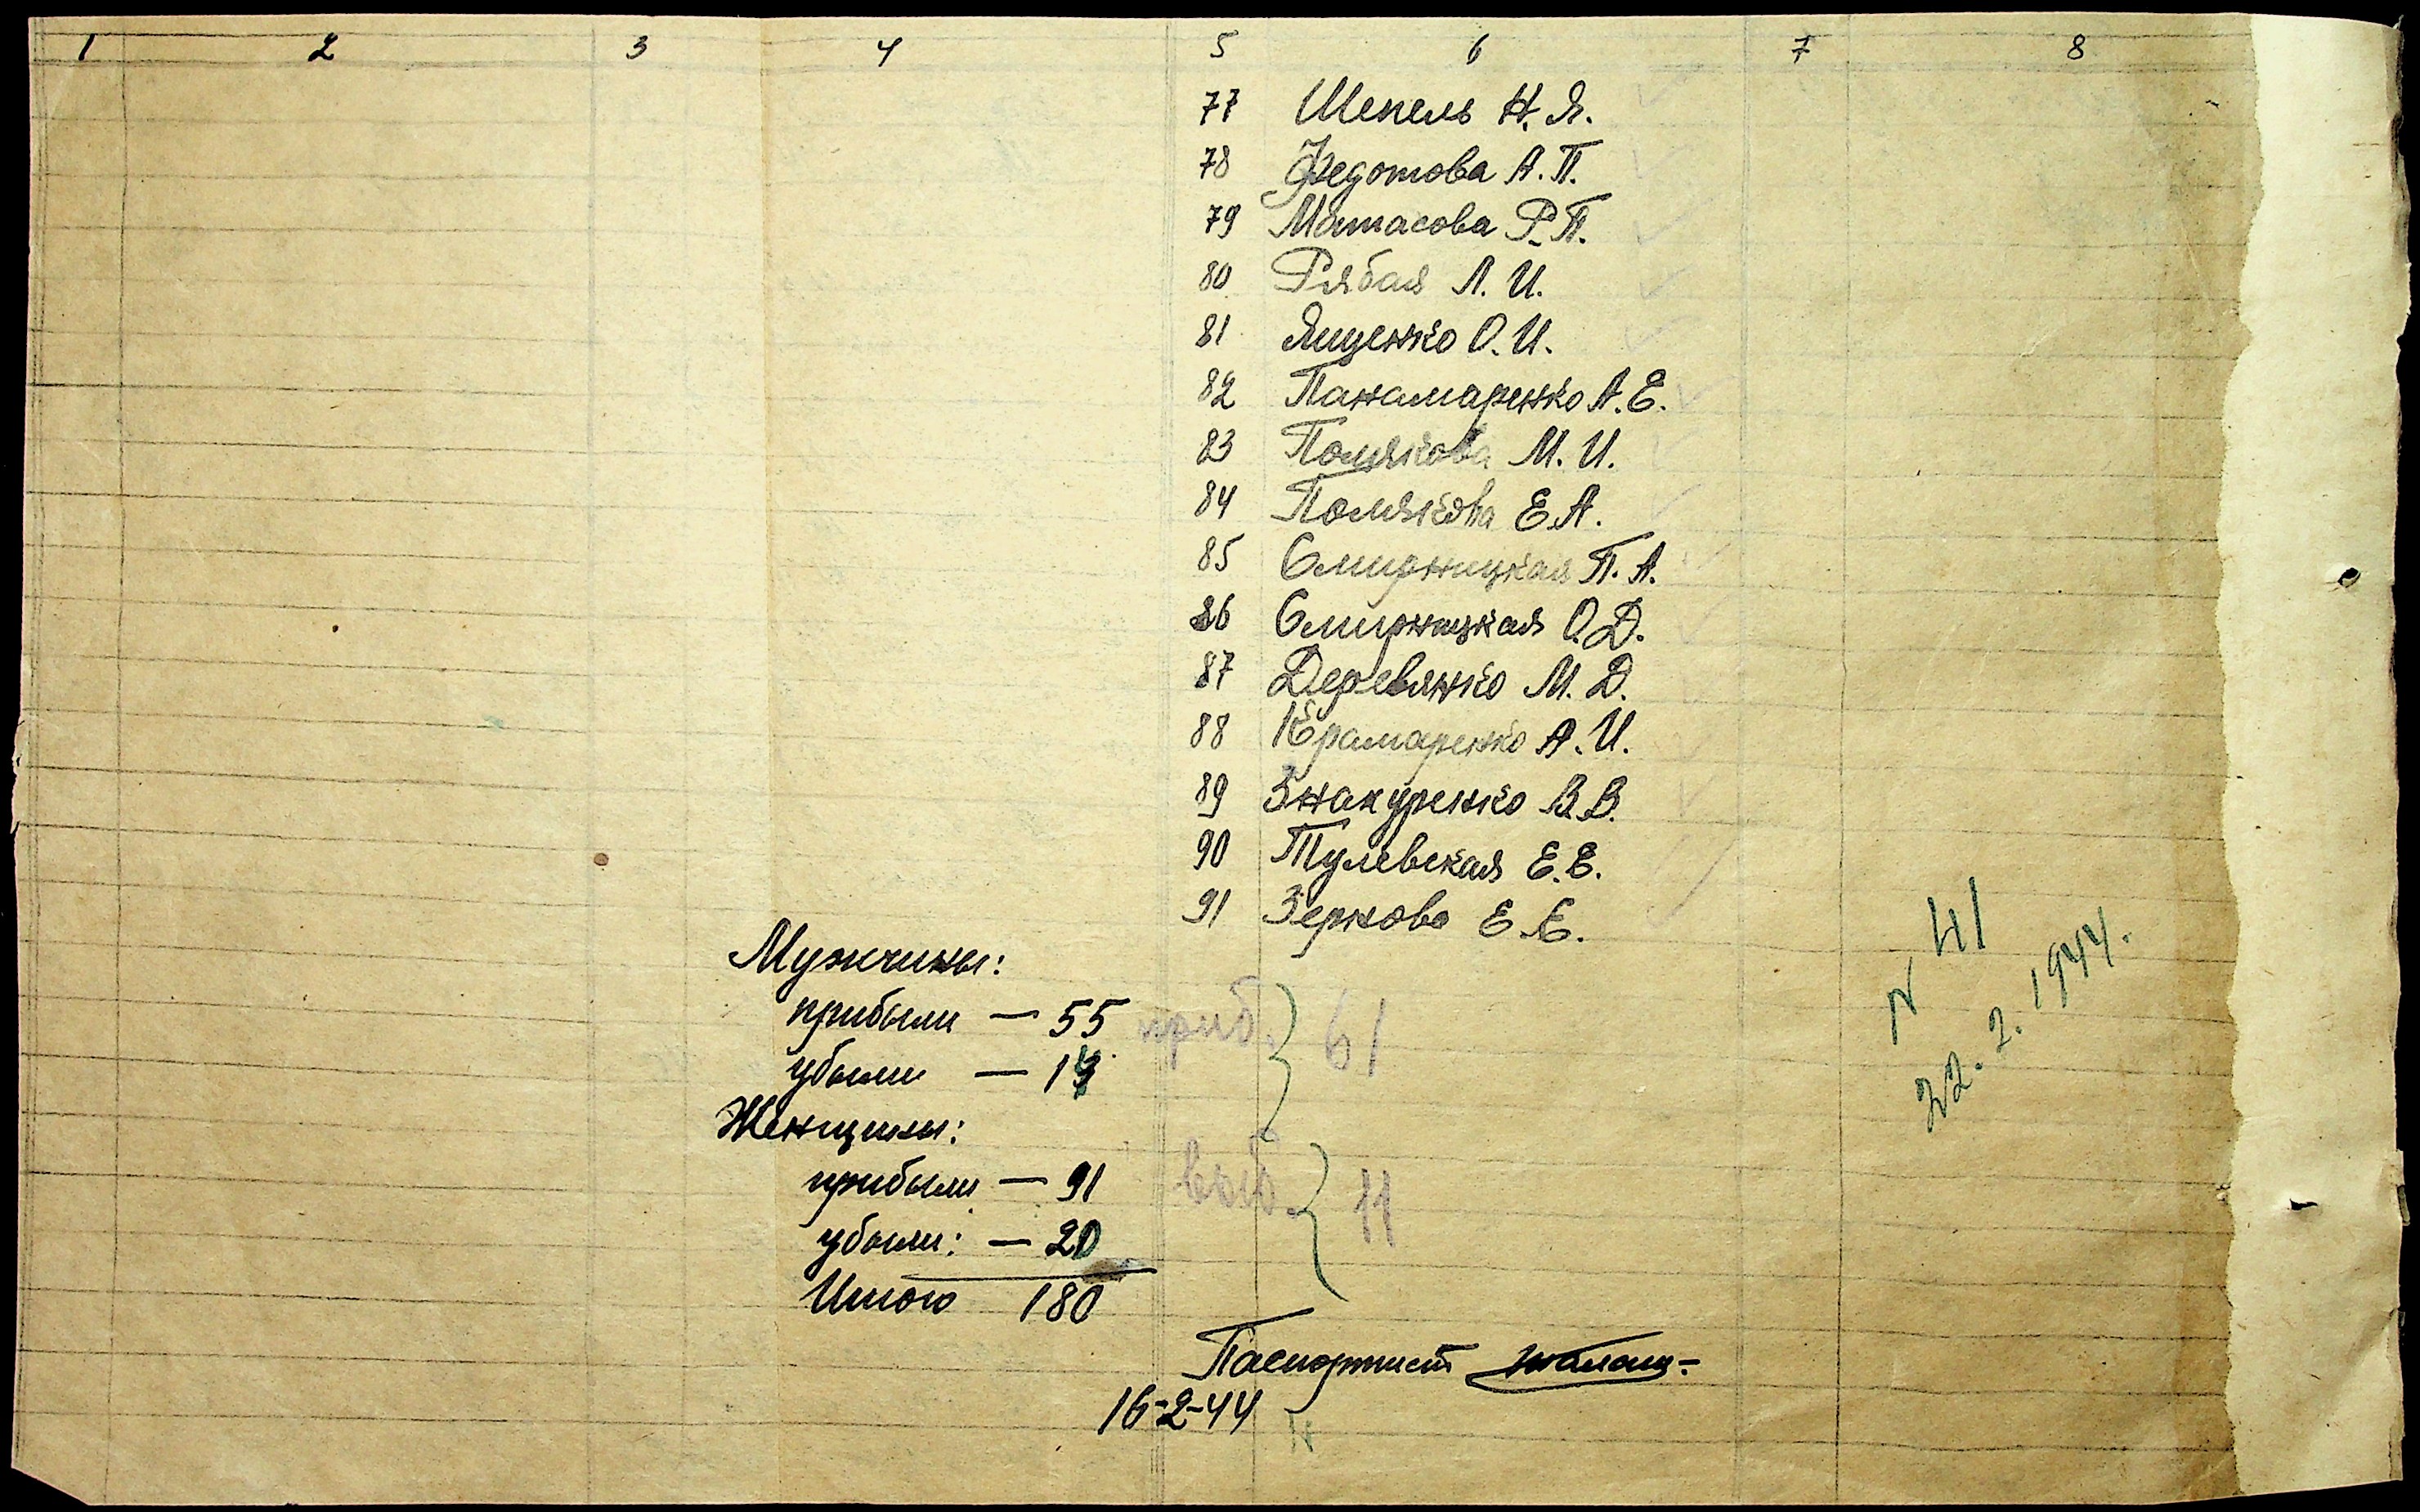 1 2 3 4 5 6 7 8
77 Шепель Н.Я.
78 Федотова А.П.
79 Матасова Р.П.
80 Рябая Л.И.
81 Ященко О.И.
82 Панамаренко А.Е.
83 Полякова М.И.
84 Полякова Е.А.
85 Смирницкая П.А.
86 Смирницкая О.Д.
87 Деревянко М.Д.
88 Крамаренко А.И.
89 Знакуренко В.В.
90 Тулевская Е.Е.
91 Зеркова Е.Е.
Мужчины:
прибыли — 55 приб. } 61
убыли — 14
Женщины:
прибыли — 91 выб. } 11
убыли: — 20
Итого 180
Паспортист
16-2-44
N 41
22.2.1944.